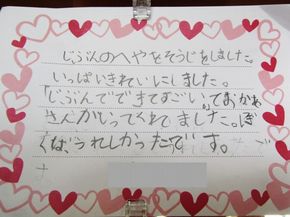 じぶんのへやをそうじをしました。
いっぱいきれいにしました。
「じぶんでできてすごい。」ておかあ
さんがいってくれてました。ぼ
くは、うれしかったです。